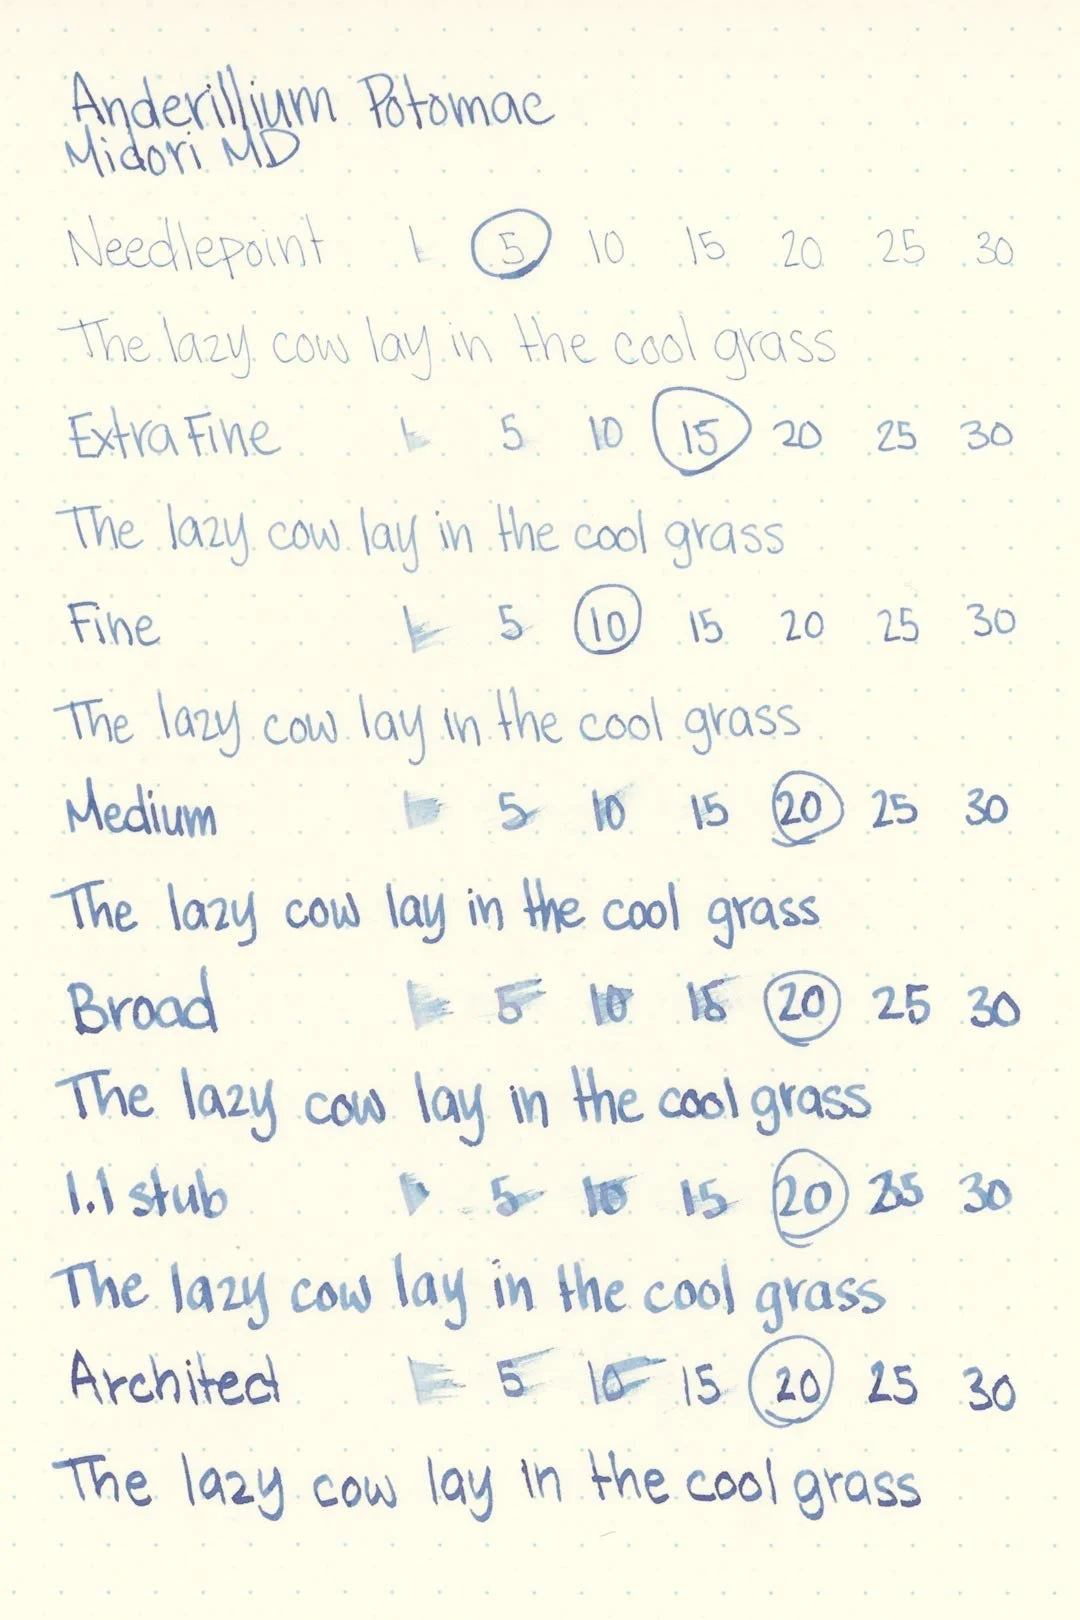 Anderillium Potomac
Midori MD
Needlepoint 1 5 10 15 20 25 30
The lazy cow lay in the cool grass
Extra Fine 1 5 10 15 20 25 30
The lazy cow lay in the cool grass
Fine 1 5 10 15 20 25 30
The lazy cow lay in the cool grass
Medium 1 5 10 15 20 25 30
The lazy cow lay in the cool grass
Broad 1 5 10 15 20 25 30
The lazy cow lay in the cool grass
1.1 stub 1 5 10 15 20 25 30
The lazy cow lay in the cool grass
Architect 1 5 10 15 20 25 30
The lazy cow lay in the cool grass